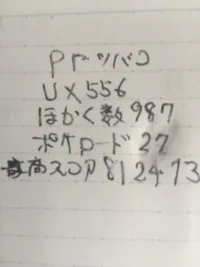 Prツバ
UX556
ほかく数987
ポケロード27
最高スコア812473